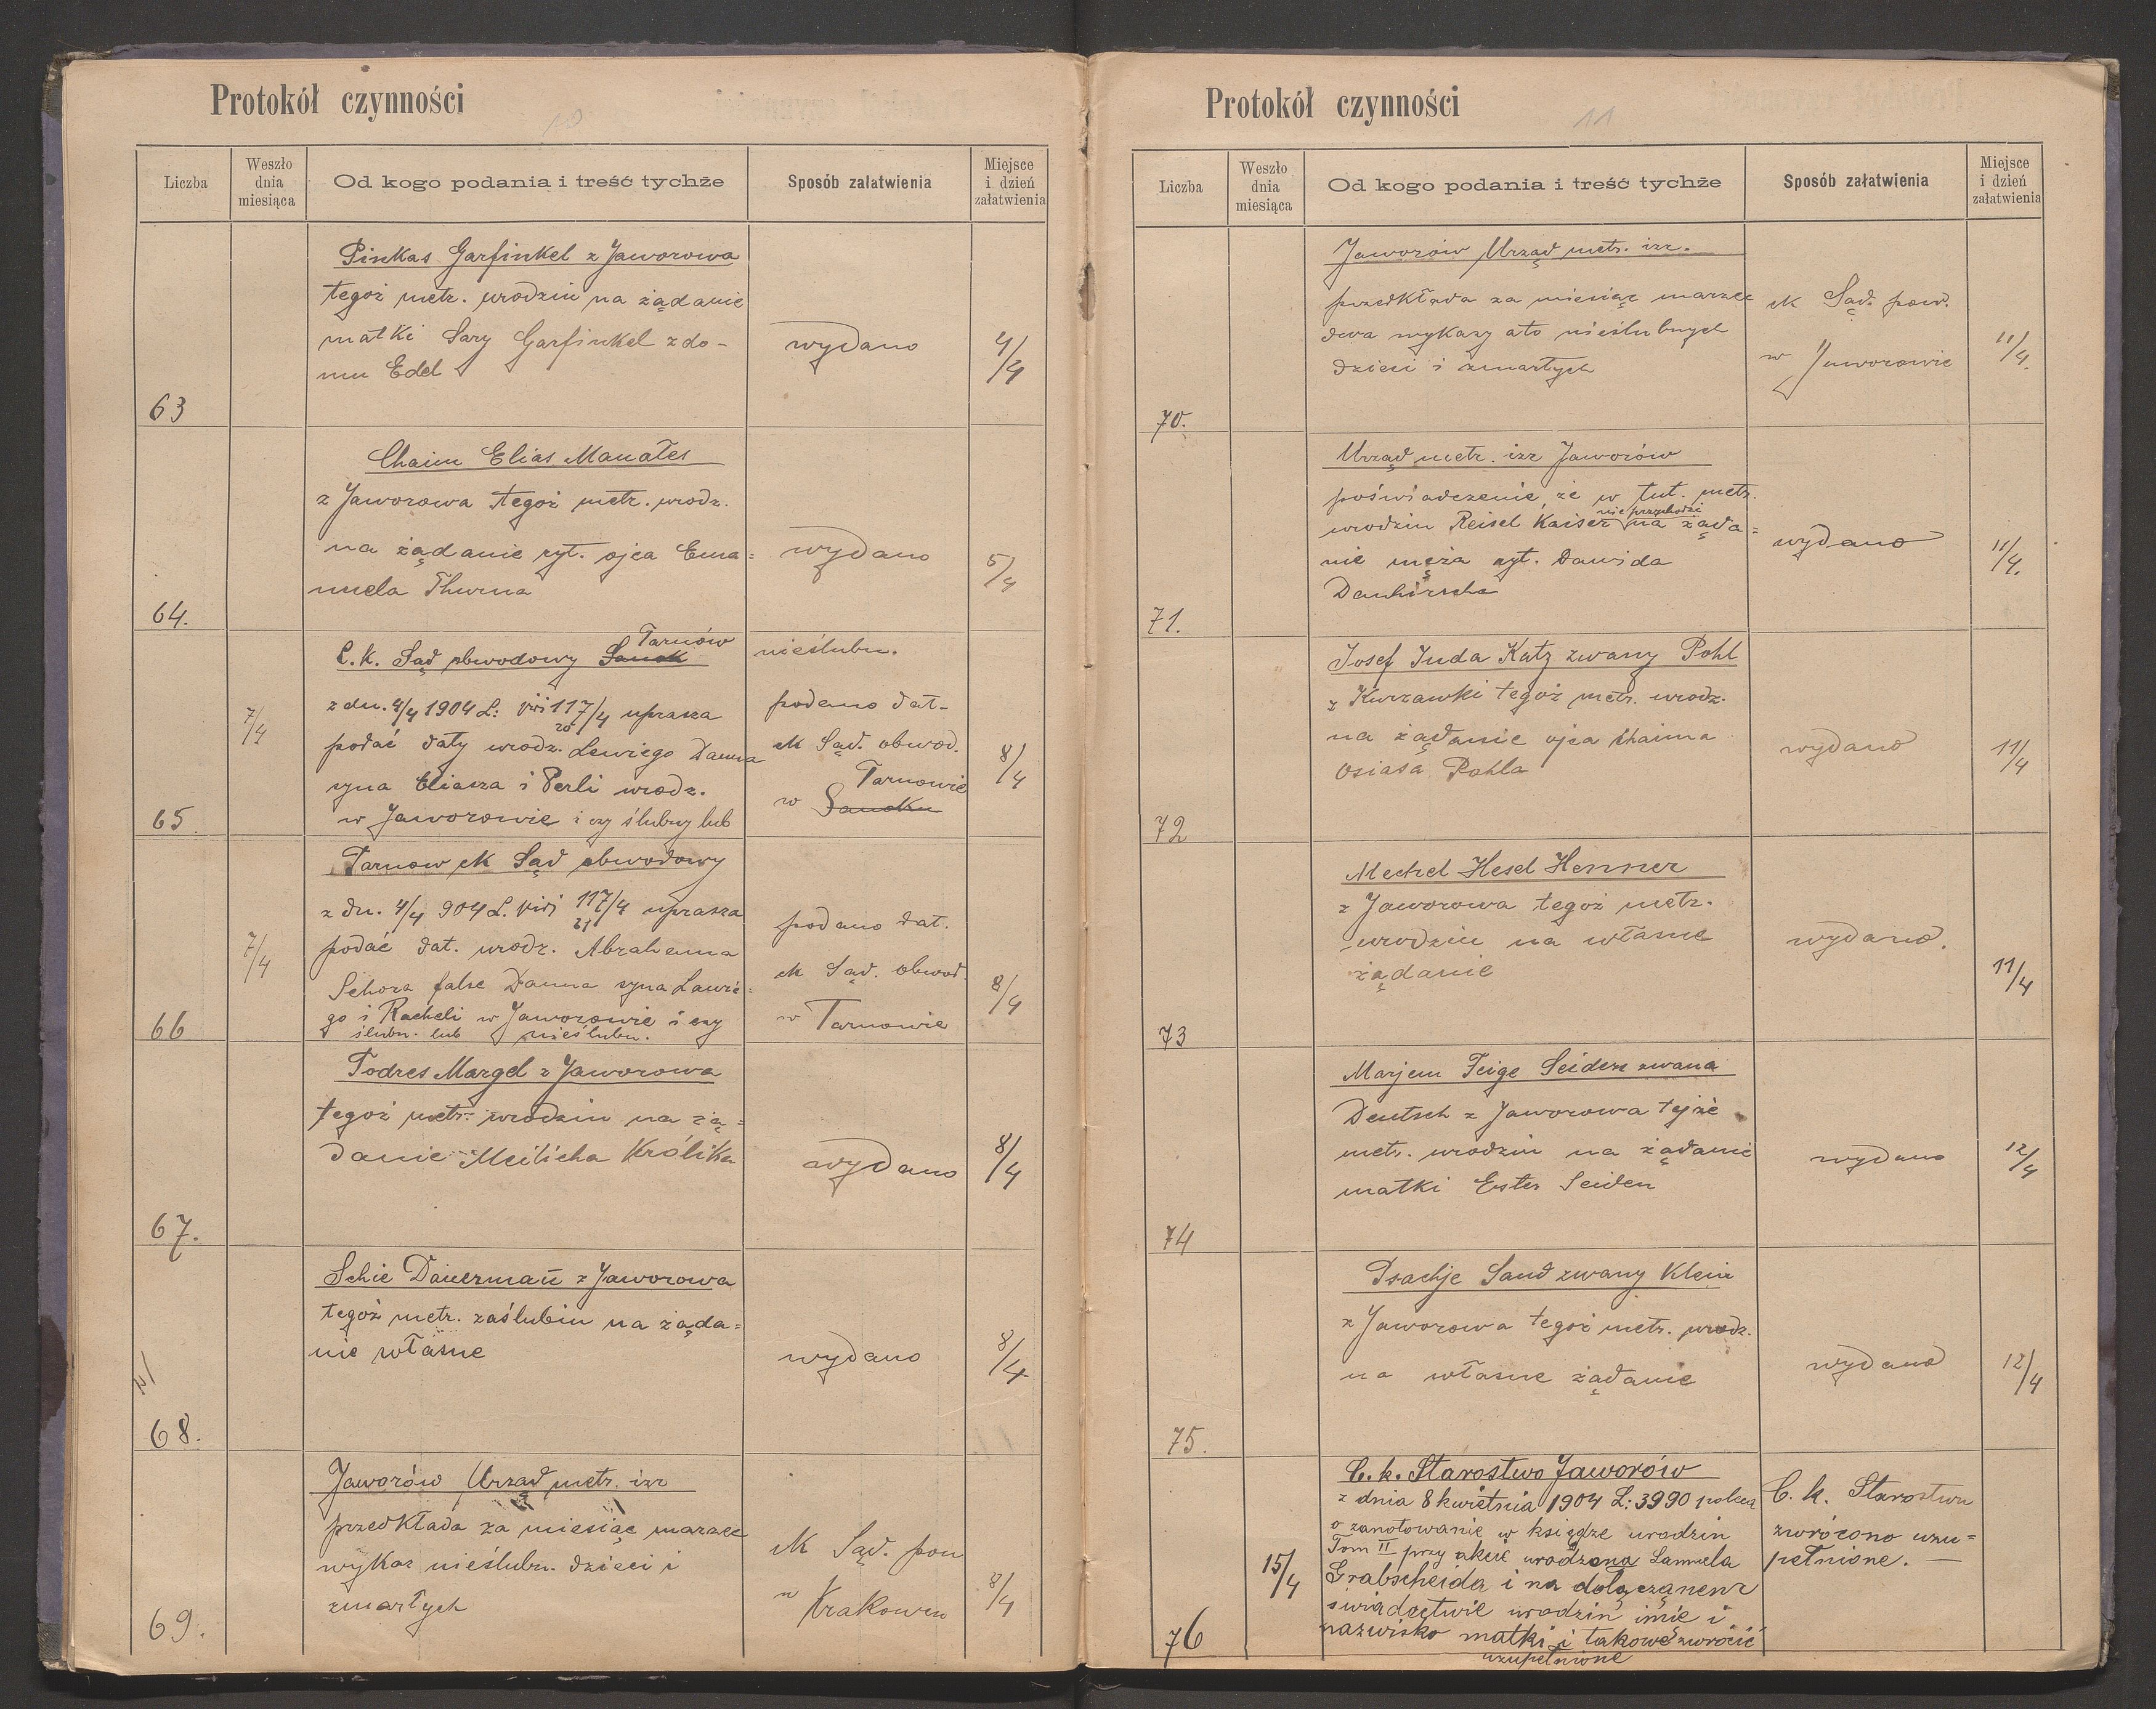 Protokół czynności
10
Liczba
Weszło dnia miesiąca
Od kogo podania i treść tychże
Sposób załatwienia
Miejsce i dzień załatwienia
Pinkas Garfinkel z Jaworowa
tegoż metr. urodzin na żądanie
matki Sary Garfinkel z do-
mu Edel
wydano
4/4
63
Chaim Elias Manates
z Jaworowa tegoż metr. urodz.
na żądanie ryt. ojca Ema=
nuela Thurma
wydano
5/4
64.
C. K. Sąd obwodowy Sanok Tarnów
z dn. 4/4 1904 L: 117/4 uprasza
20
podać daty urodz. Lewiego Damma
syna Eliasza i Perli urodz.
w Jaworowie i czy ślubny lub
nieślubn.
podano dat-
ck Sąd. obwod.
Tarnowie
w Sanoku
7/4
8/4
65.
Tarnow ck Sąd obwodowy
z dn. 4/4 904 L. 117/4 uprasza
21
podać dat. urodz. Abrahama
Schora false Damma syna Lawie=
go i Racheli w Jaworowie i czy
ślubn. lub nieślubn.
podano dat.
ck Sąd. obwod.
w Tarnowie
7/4
8/4
66
Todres Margel z Jaworowa
tegoż metr. urodzin na żą=
danie Meilicha Królika
wydano
8/4
67.
Schie Dauerman̄ z Jaworowa
tegoż metr. zaślubin na żąda=
nie własne
wydano
8/4
68.
Jaworów Urząd metr. izr
przedkłada za miesiąc marzec
wykaz nieślubn. dzieci i
zmarłych
ck Sąd. pow
w Krakowcu
8/4
69.
Protokół czynności
11
Liczba
Weszło dnia miesiąca
Od kogo podania i treść tychże
Sposób załatwienia
Miejsce i dzień załatwienia
Jaworów Urząd metr. izr.
przedkłada za miesiąc marzec
dwa wykazy a to nieślubnych
dzieci i zmarłych
ck Sąd. pow.
w Jaworowie
11/4.
70.
Urząd metr. izr Jaworów
poświadczenie, że w tut. metr.
nie przychodzi
urodzin Reisel Kaiser na żąda=
nie męża ryt. Dawida
Danhirscha
wydano
11/4.
71.
Josef Juda Katz zwany Pohl
z Kurzawki tegoż metr. urodz.
na żądanie ojca Chaima
Osiasa Pohla
wydano
11/4
72
Mechel Hesel Henner
z Jaworowa tegoż metr.
urodzin na własne
żądanie
wydano.
11/4
73
Marjem Feige Seiden zwana
Deutsch z Jaworowa tejże
metr. urodzin na żądanie
matki Ester Seiden
wydano
12/4
74
Dsachje Sand zwany Klein
z Jaworowa tegoż metr. urodz.
na własne żądanie
wydano
12/4
75.
C. k. Starostwo Jaworów
z dnia 8 kwietnia 1904 L: 3990 poleca
o zanotowanie w księdze urodzin
Tom II przy akcie urodzenia Samuela
Grabscheida i na dołączanem
świadectwie urodzin imię i
nazwisko matki i takowe zwrócić
uzupełnione
C. k. Starostwu
zwrócono uzu=
pełnione. —
15/4
76